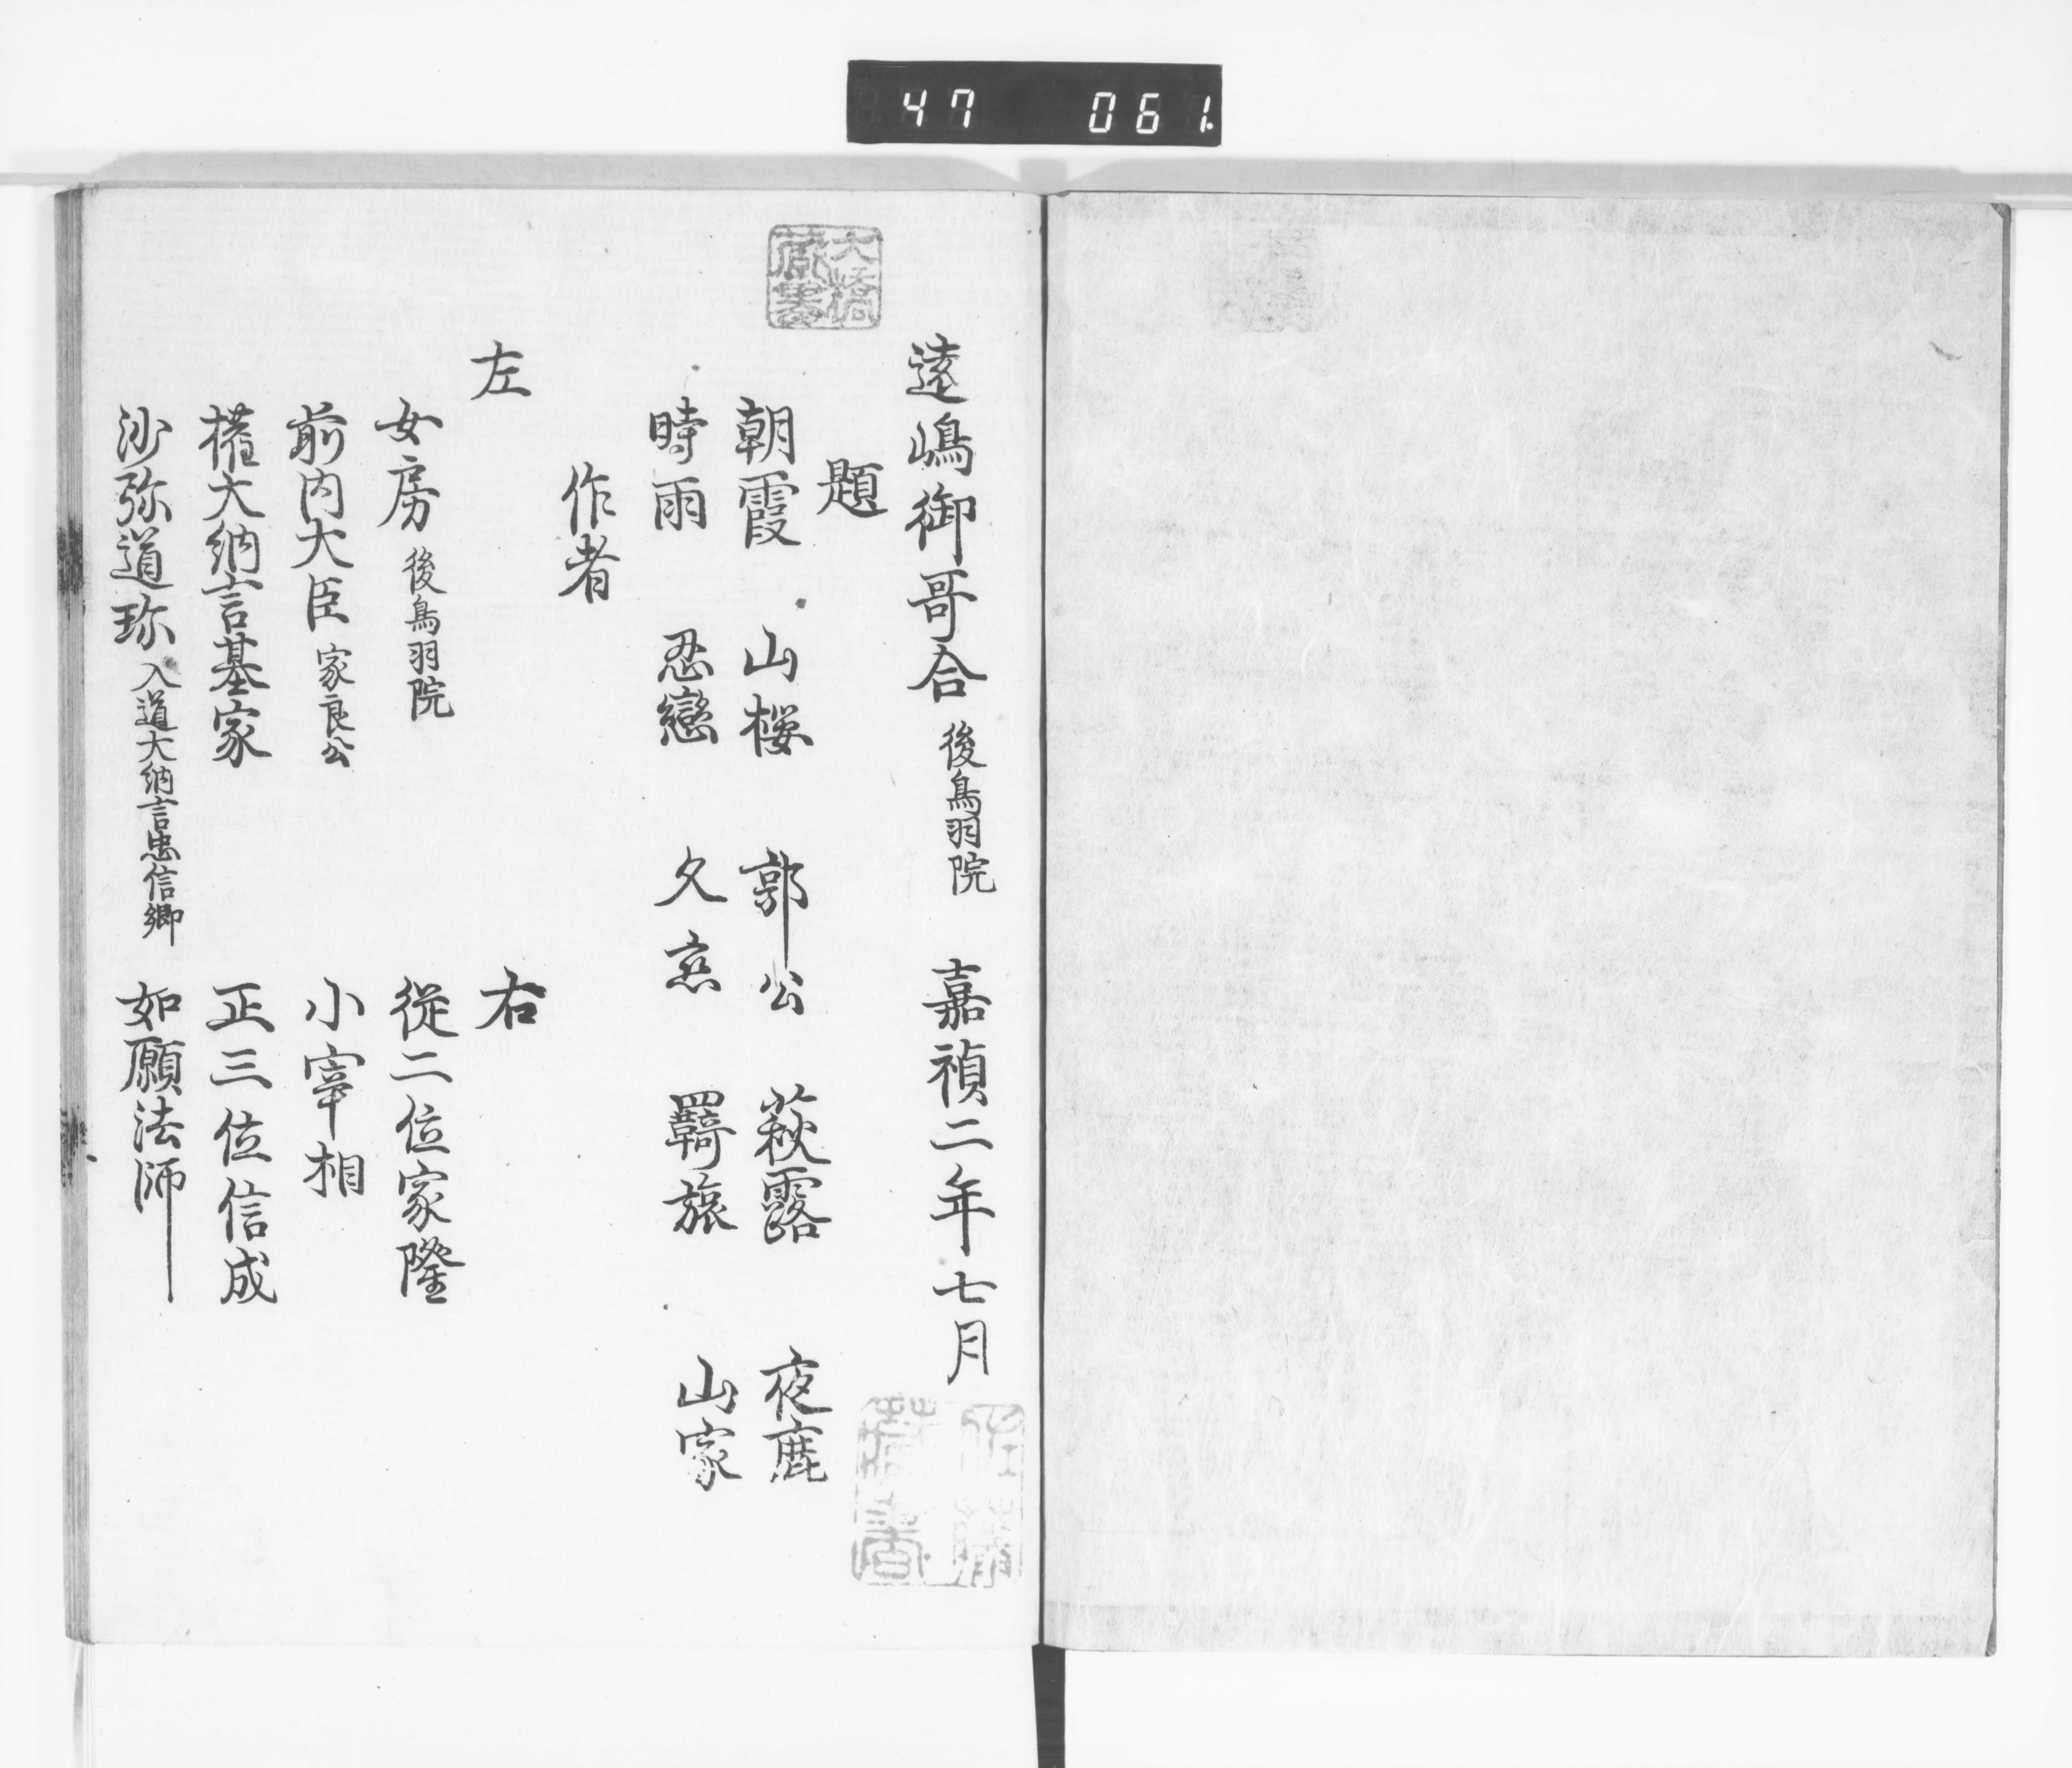 47 061
遠嶋御哥合 後鳥羽院 嘉禎二年七月
題
朝霞 山桜 郭公 萩露 夜鹿
時雨 忍戀 久恋 羇旅 山家
作者
左 右
女房 後鳥羽院 従二位家隆
前内大臣 家良公 小宰相
権大納言基家 正三位信成
沙弥道珎 入道大納言忠信卿 如願法師
大橋
蔵書